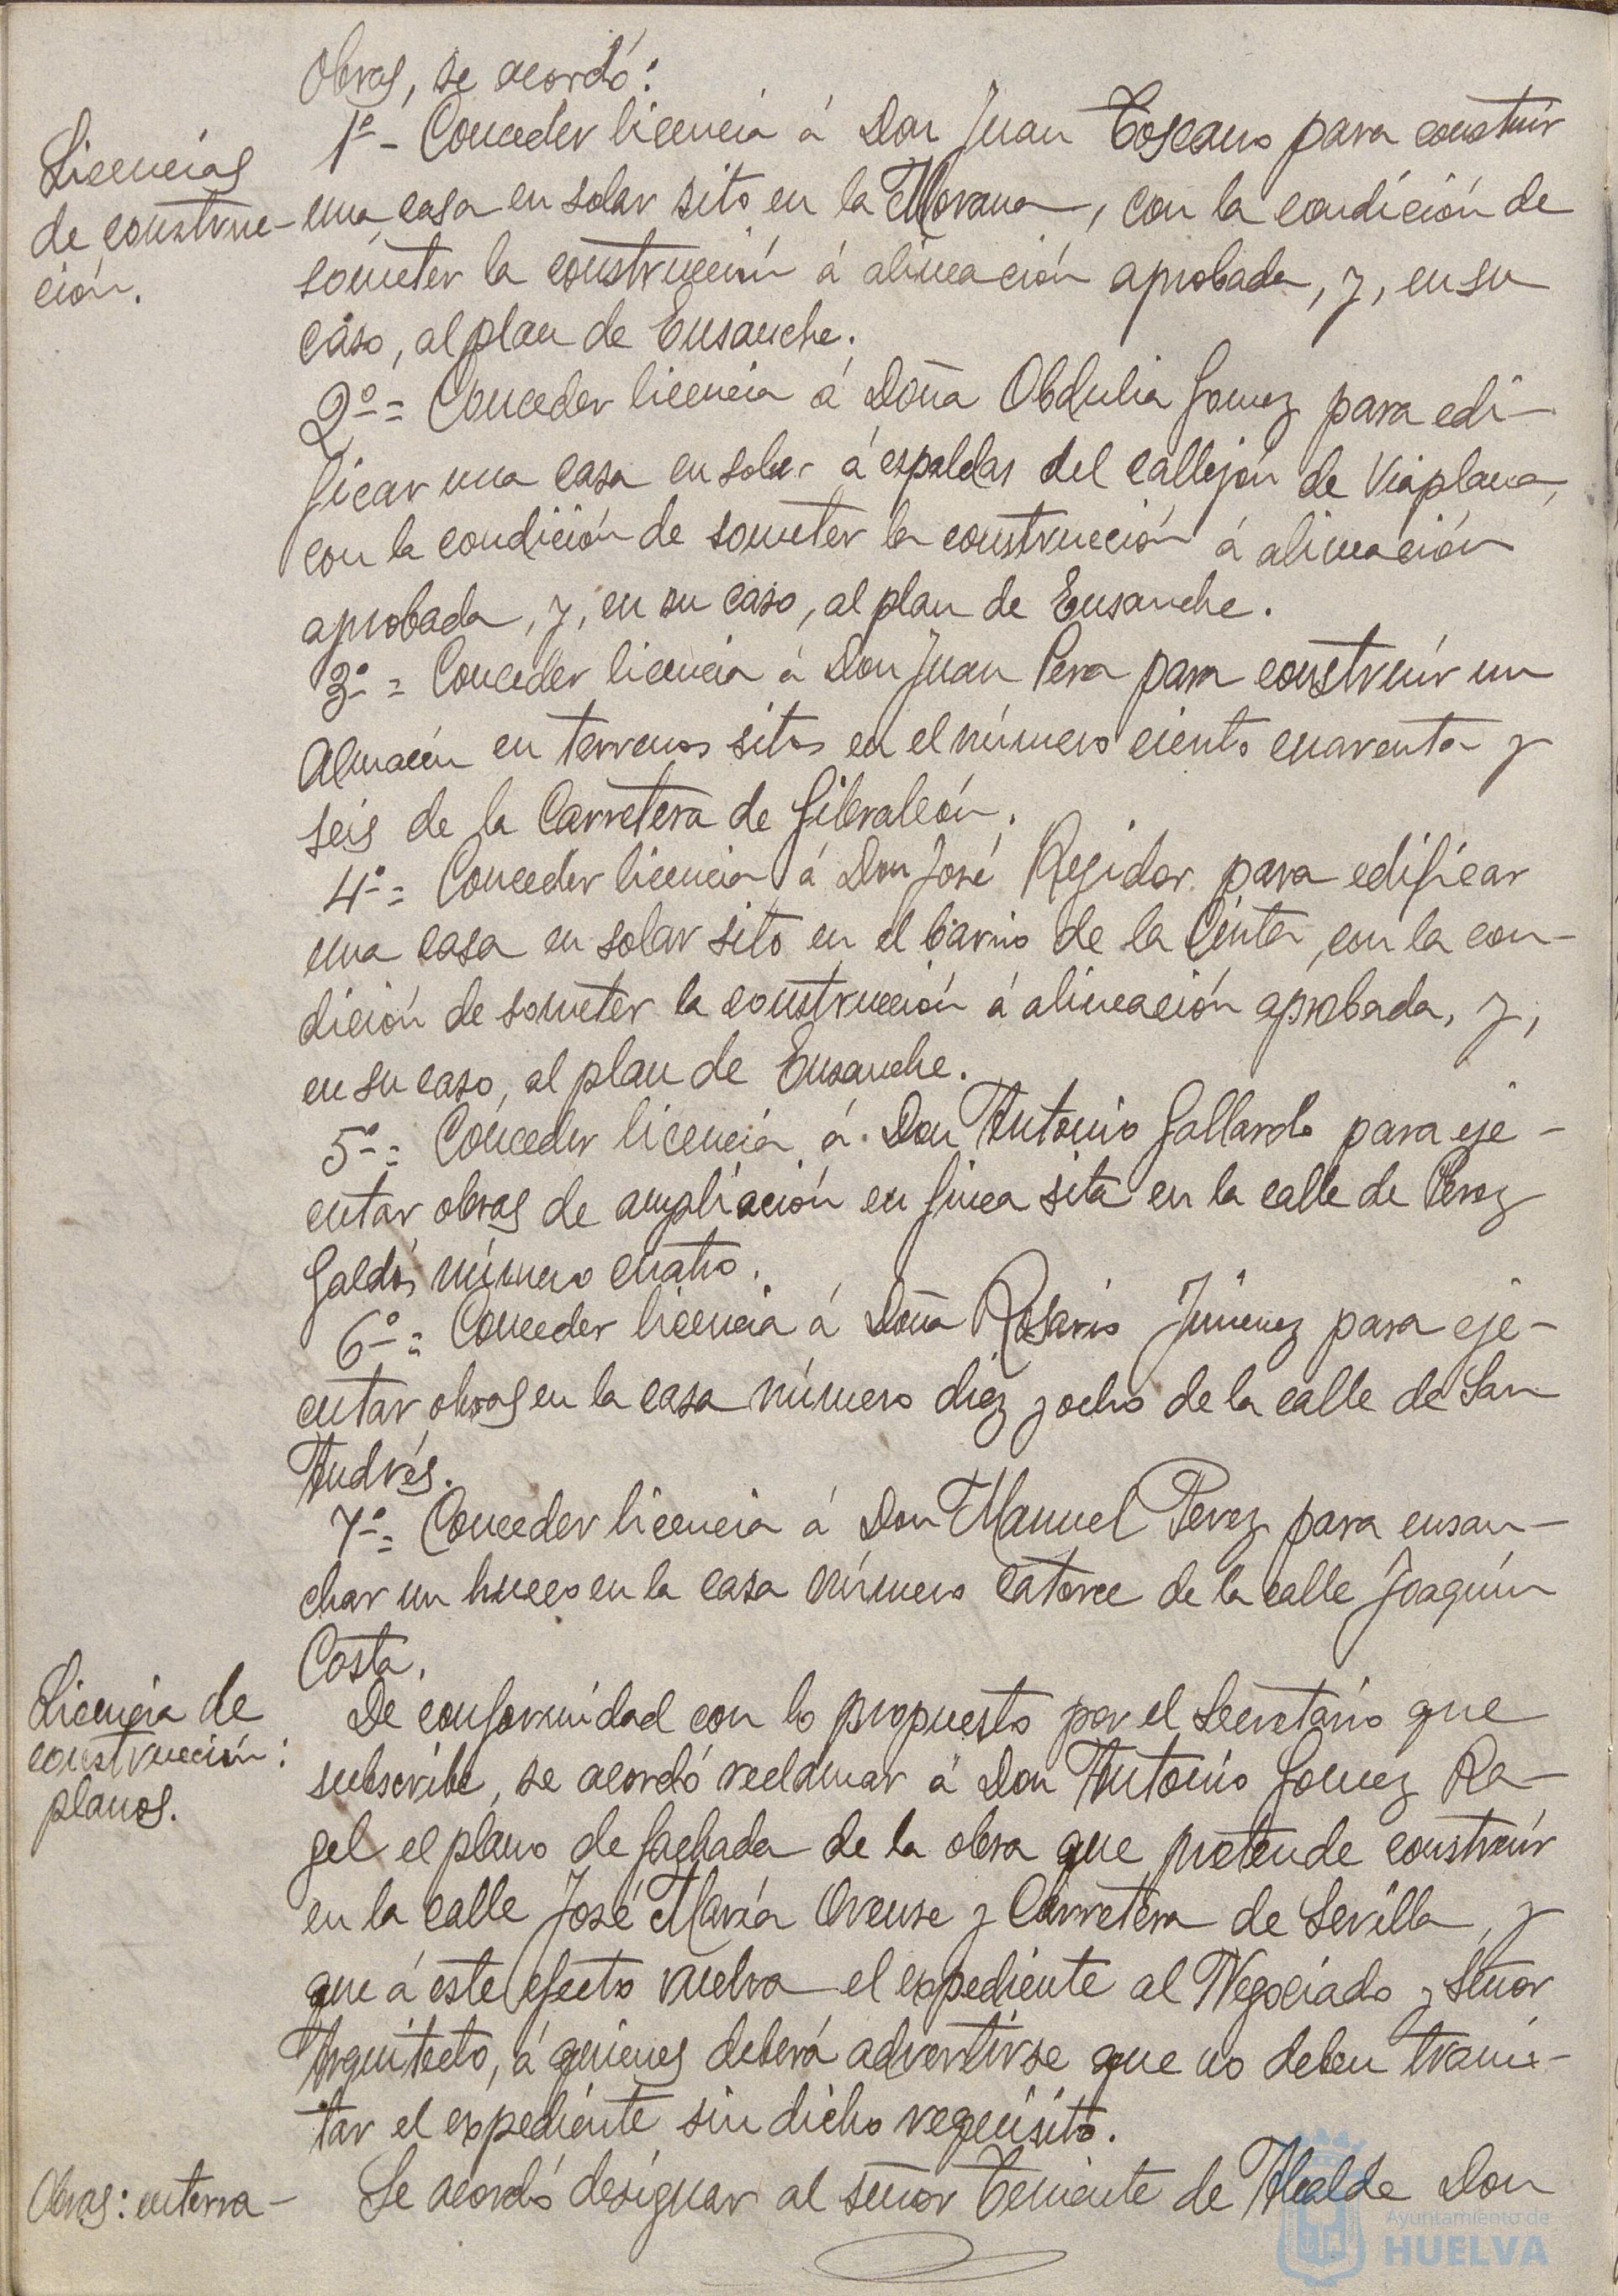 Obras, se acordó:
Licencias
de construc-
ción.
1º - Conceder licencia á Don Juan Toscano para construir
una casa en solar sito en la Morana, con la condición de
someter la construcción á alineación aprobada, y, en su
caso, al plan de Ensanche.
2º = Conceder licencia á Doña Obdulia Gomez para edi-
ficar una casa en solar á espaldas del callejón de Viaplana,
con la condición de someter la construcción á alineación
aprobada, y, en su caso, al plan de Ensanche.
3º = Conceder licencia á Don Juan Pera para construir un
Almacén en terrenos sitos en el número ciento cuarenta y
seis de la Carretera de Gibraleón.
4º = Conceder licencia á Don José Regidor para edificar
una casa en solar sito en el barrio de la Cinta, con la con-
dición de someter la construcción á alineación aprobada, y,
en su caso, al plan de Ensanche.
5º = Conceder licencia á Don Antonio Gallardo para eje-
cutar obras de ampliación en finca sita en la calle de Perez
Galdós número cuatro.
6º = Conceder licencia á Doña Rosario Jimenez para eje-
cutar obras en la casa número diez y ocho de la calle de San
Andrés.
7º = Conceder licencia á Don Manuel Perez para ensan-
char un hueco en la casa número catorce de la calle Joaquín
Costa.
Licencia de
construcción:
planos.
De conformidad con lo propuesto por el Secretario que
subscribe, se acordó reclamar á Don Antonio Gomez Ra-
gel el plano de fachada de la obra que pretende construir
en la calle José María Orense y Carretera de Sevilla, y
que á este efecto vuelva el expediente al Negociado y Señor
Arquitecto, á quienes deberá advertirse que no deben trami-
tar el expediente sin dicho requisito.
Obras: enterra-
Se acordó designar al señor Teniente de Alcalde Don
Ayuntamiento de
HUELVA